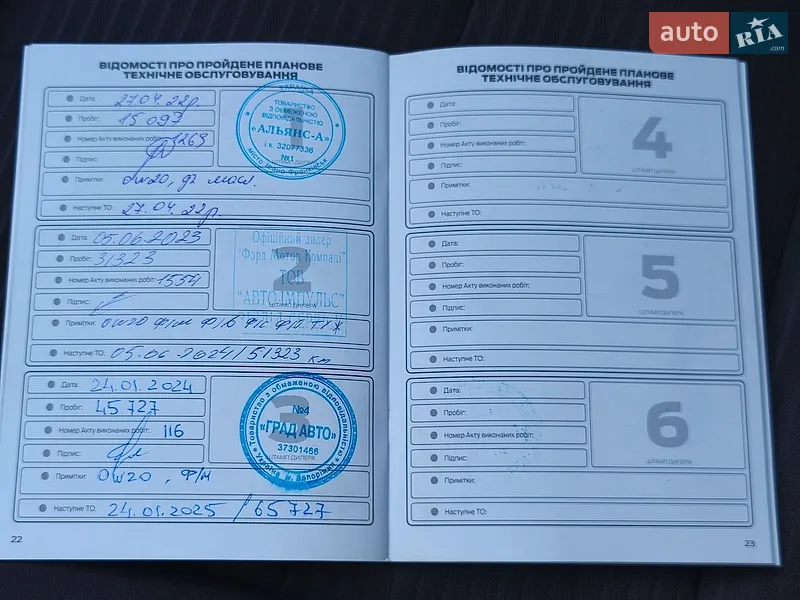 auto RIA .com
ВІДОМОСТІ ПРО ПРОЙДЕНЕ ПЛАНОВЕ
ТЕХНІЧНЕ ОБСЛУГОВУВАННЯ
Дата: 27.04.22р.
Пробіг: 15 097
Номер Акту виконаних робіт: 1263
Підпис:
Примітки: 0w20, ф2 масл.
Наступне ТО: 27.04.22р.
УКРАЇНА
ТОВАРИСТВО
З ОБМЕЖЕНОЮ
ВІДПОВІДАЛЬНІСТЮ
«АЛЬЯНС-А»
і.к. 32077336
№1
місто Івано-Франківськ
Дата: 05.06.2023
Пробіг: 31323
Номер Акту виконаних робіт: 1554
Підпис:
Примітки: 0w20 ф/м ф/в ф/с ф/п ТУЖ
Наступне ТО: 05.06.2024/51323 км
2
Офіційний дилер
"Форд Мотор Компані"
ТОВ
"АВТО-ІМПУЛЬС"
ШТАМП ДИЛЕРА
Дата: 24.01.2024
Пробіг: 45727
Номер Акту виконаних робіт: 116
Підпис:
Примітки: 0w20, Ф/М
Наступне ТО: 24.01.2025 / 65727
3
Товариство з обмеженою відповідальністю
№4
«ГРАД АВТО»
37301466
ШТАМП ДИЛЕРА
Україна м. Запоріжжя
22
ВІДОМОСТІ ПРО ПРОЙДЕНЕ ПЛАНОВЕ
ТЕХНІЧНЕ ОБСЛУГОВУВАННЯ
Дата:
Пробіг:
Номер Акту виконаних робіт:
Підпис:
Примітки:
Наступне ТО:
4
ШТАМП ДИЛЕРА
Дата:
Пробіг:
Номер Акту виконаних робіт:
Підпис:
Примітки:
Наступне ТО:
5
ШТАМП ДИЛЕРА
Дата:
Пробіг:
Номер Акту виконаних робіт:
Підпис:
Примітки:
Наступне ТО:
6
ШТАМП ДИЛЕРА
23